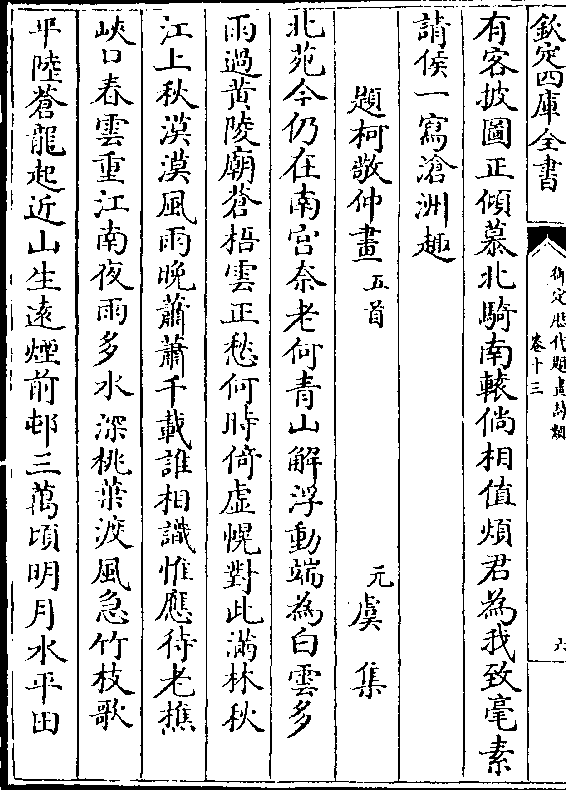 欽定四庫全書
御定歷代題畫詩類
卷十三
六
有客披圖正傾慕北騎南轅倘相值煩君為我致毫素
請侯一寫滄洲趣
題柯敬仲畫五首
元虞集
北苑今仍在南宮奈老何青山解浮動端為白雲多
雨過黃陵廟蒼梧雲正愁何時倚虛幌對此滿林秋
江上秋漠漠風雨晚蕭蕭千載誰相識惟應待老樵
峽口春雲重江南夜雨多水深桃葉渡風急竹枝歌
平陸蒼龍起近山生遠煙前邨三萬頃明月水平田